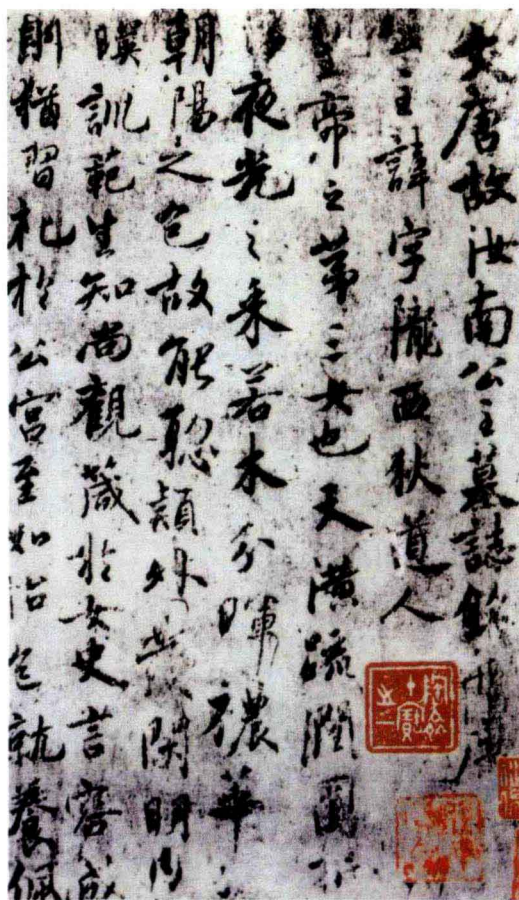 大唐故汝南公主墓誌銘并序
公主諱字隴西狄道人
皇帝之第三女也天潢疏潤圓折
浮夜光之采若木分暉穠華
朝陽之色故能聡穎外發閑明内
暎訓範生知尚觀箴於女史言容成
則猶習礼於公宮至如怡色就養佩